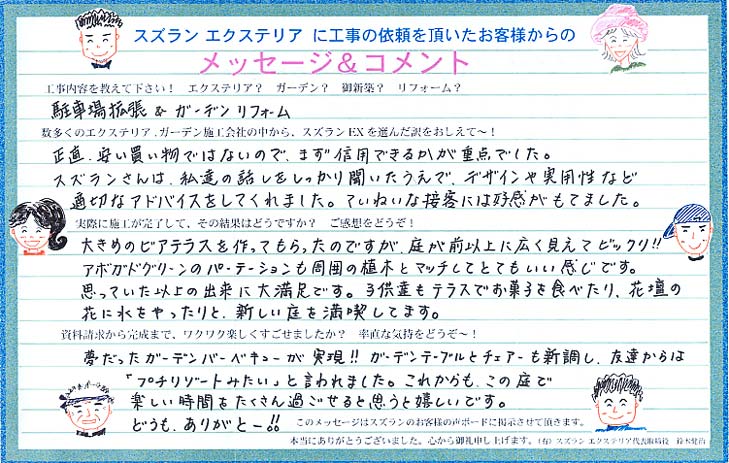 スズラン エクステリア に工事の依頼を頂いたお客様からの
メッセージ＆コメント
工事内容を教えて下さい！　エクステリア？　ガーデン？　御新築？　リフォーム？
駐車場拡張 & ガーデンリフォーム
数多くのエクステリア、ガーデン施工会社の中から、スズランEXを選んだ訳をおしえて～！
正直、安い買い物ではないので、まず信用できるかが重点でした。
スズランさんは、私達の話しをしっかり聞いたうえで、デザインや実用性など
適切なアドバイスをしてくれました。ていねいな接客には好感がもてました。
実際に施工が完了して、その結果はどうですか？　ご感想をどうぞ！
大きめのビアテラスを作ってもらったのですが、庭が前以上に広く見えてビックリ!!
アボガドグリーンのパーテーションも周囲の植木とマッチしてとてもいい感じです。
思っていた以上の出来に大満足です。子供達もテラスでお菓子を食べたり、花壇の
花に水をやったりと、新しい庭を満喫してます。
資料請求から完成まで、ワクワク楽しくすごせましたか？　率直な気持をどうぞ～！
夢だったガーデンバーベキューが実現!! ガーデンテーブルとチェアーも新調し、友達からは
「プチリゾートみたい」と言われました。これからも、この庭で
楽しい時間をたくさん過ごせると思うと嬉しいです。
どうも、ありがとー!!
このメッセージはスズランのお客様の声ボードに掲示させて頂きます。
本当にありがとうございました。心から御礼申し上げます。（有）スズラン エクステリア代表取締役